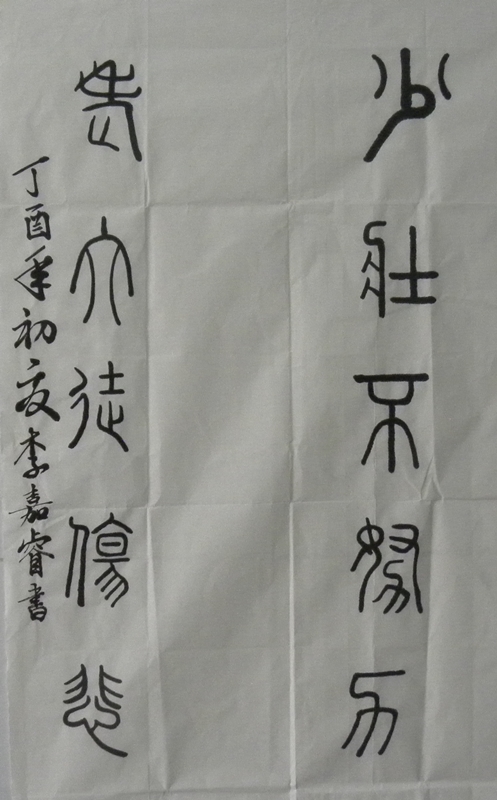 少壯不努力
老大徒傷悲
丁酉年初夏李嘉睿書